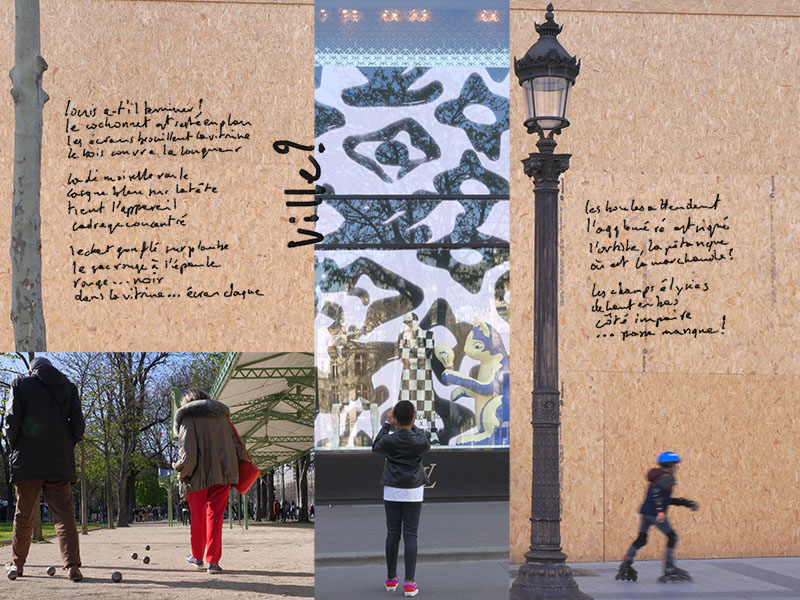 Louis a-t-il terminer?
le cochonnet est resté en plan
les écrans brouillent la vitrine
le bois couvre la longueur
la demoiselle roule
casque bleu sur la tête
tient l'appareil
cadrage courtisé
le sac rouge à l'épaule
rouge... noir
dans la vitrine... écran claque
ville?
les boules attendent
l'aggloméré est signé
l'artiste, la pétanque
où est la marchande?
les champs élysées
de haut en bas
côté impaire
... passe manque!
LV